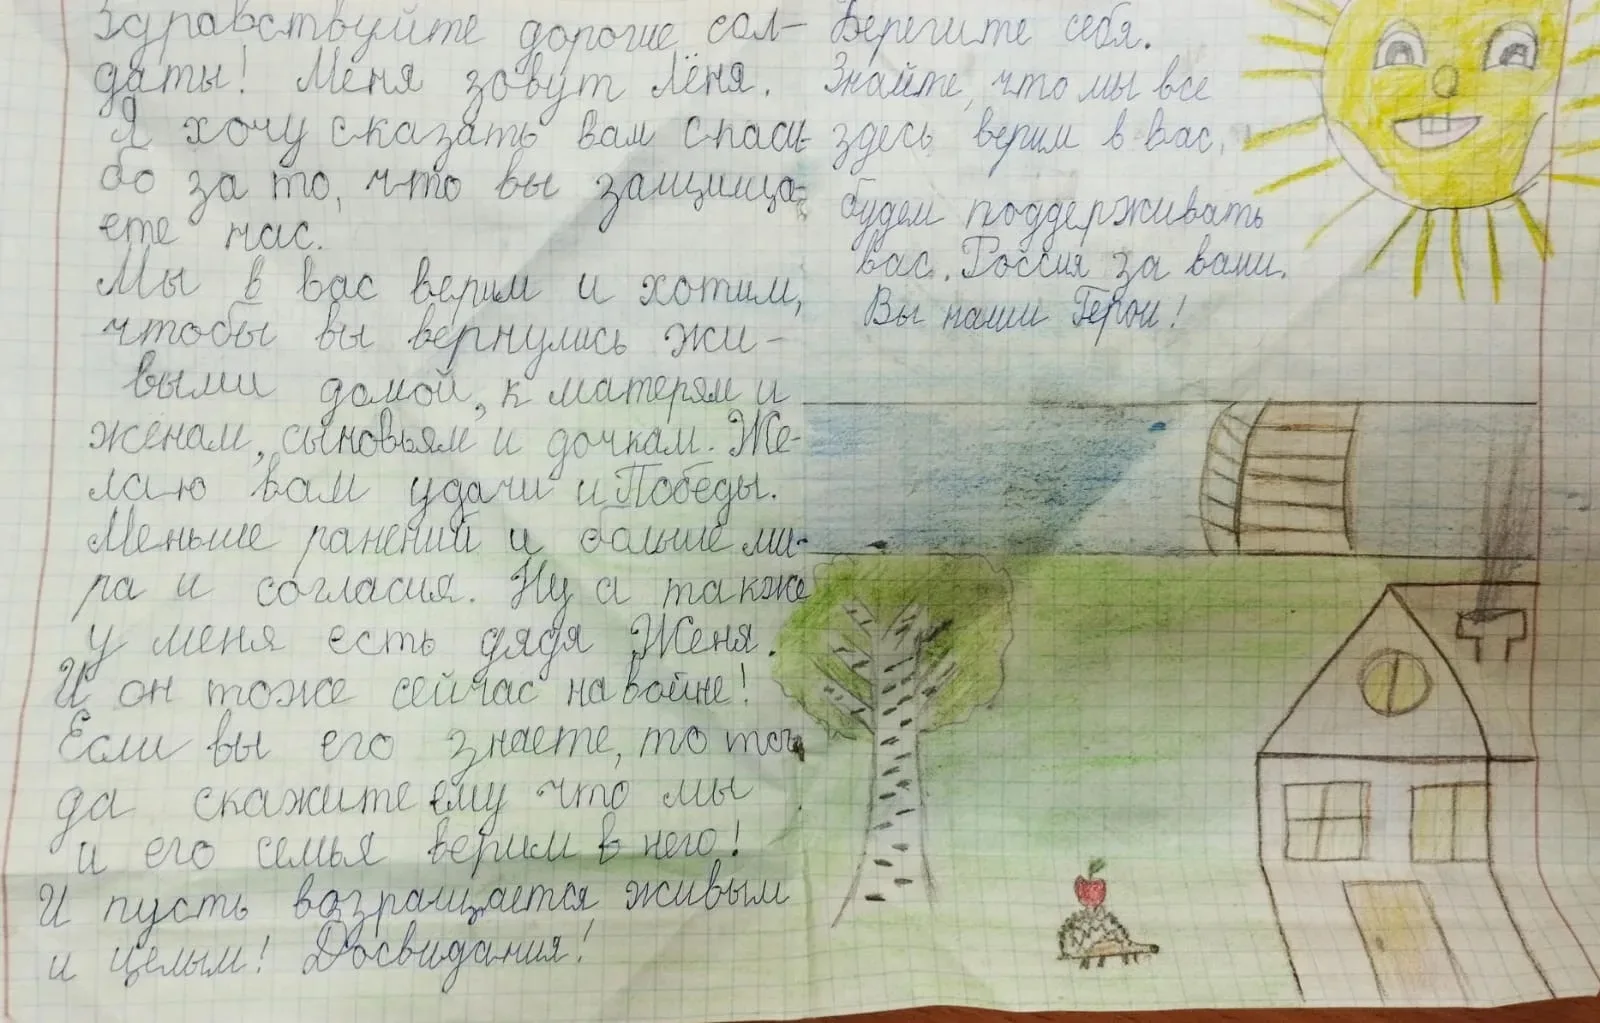 Здравствуйте дорогие сол-
даты! Меня зовут Лёня.
Я хочу сказать вам спаси-
бо за то, что вы защища-
ете нас.
Мы в вас верим и хотим,
чтобы вы вернулись жи-
выми домой, к матерям и
женам, сыновьям и дочкам. Же-
лаю вам удачи и Победы.
Меньше ранений и больше ми-
ра и согласия. Ну а также
у меня есть дядя Женя.
И он тоже сейчас на войне!
Если вы его знаете, то тог
да скажите ему что мы
и его семья верим в него!
И пусть возращается живым
и целым! Досвидания!
Берегите себя.
Знайте, что мы все
здесь верим в вас,
будем поддерживать
вас. Россия за вами.
Вы наши Герои!